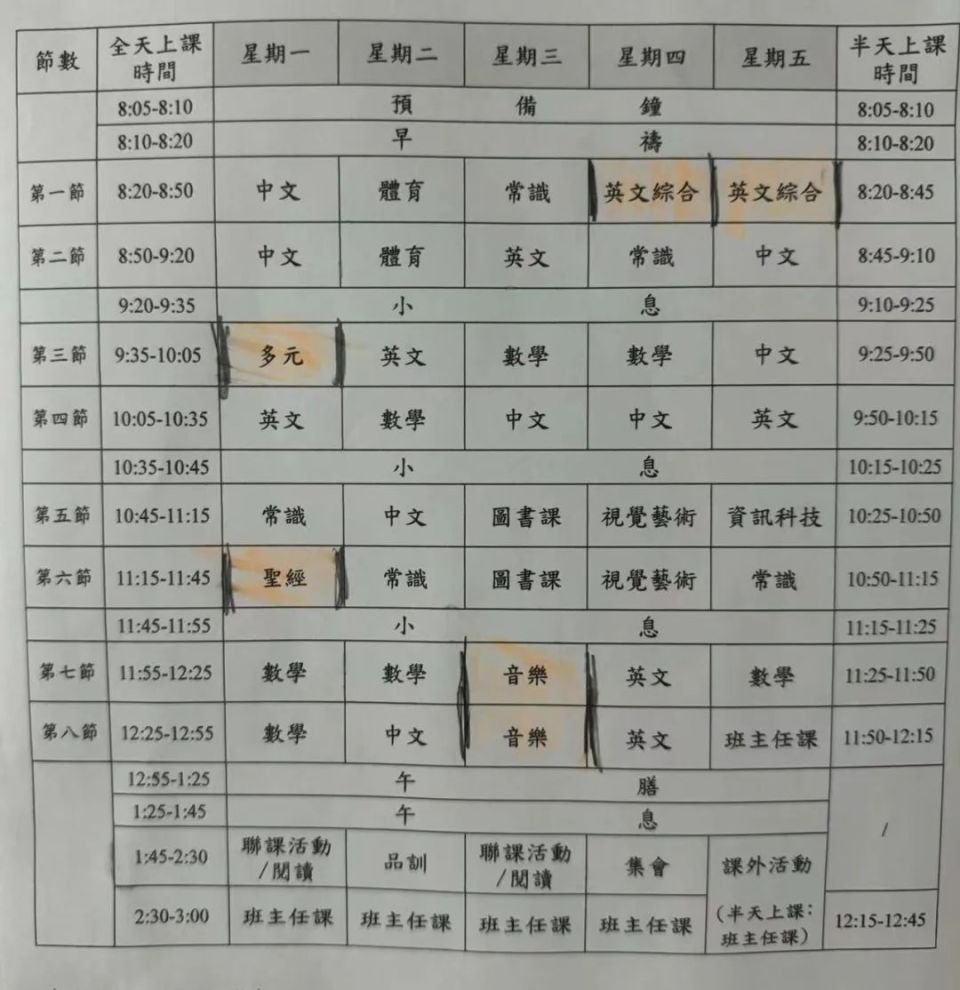 節數 全天上課時間 星期一 星期二 星期三 星期四 星期五 半天上課時間
8:05-8:10 預備鐘 8:05-8:10
8:10-8:20 早禱 8:10-8:20
第一節 8:20-8:50 中文 體育 常識 英文綜合 英文綜合 8:20-8:45
第二節 8:50-9:20 中文 體育 英文 常識 中文 8:45-9:10
9:20-9:35 小息 9:10-9:25
第三節 9:35-10:05 多元 英文 數學 數學 中文 9:25-9:50
第四節 10:05-10:35 英文 數學 中文 中文 英文 9:50-10:15
10:35-10:45 小息 10:15-10:25
第五節 10:45-11:15 常識 中文 圖書課 視覺藝術 資訊科技 10:25-10:50
第六節 11:15-11:45 聖經 常識 圖書課 視覺藝術 常識 10:50-11:15
11:45-11:55 小息 11:15-11:25
第七節 11:55-12:25 數學 數學 音樂 英文 數學 11:25-11:50
第八節 12:25-12:55 數學 中文 音樂 英文 班主任課 11:50-12:15
12:55-1:25 午膳 /
1:25-1:45 午息
1:45-2:30 聯課活動/閱讀 品訓 聯課活動/閱讀 集會 課外活動
2:30-3:00 班主任課 班主任課 班主任課 班主任課 (半天上課：班主任課) 12:15-12:45